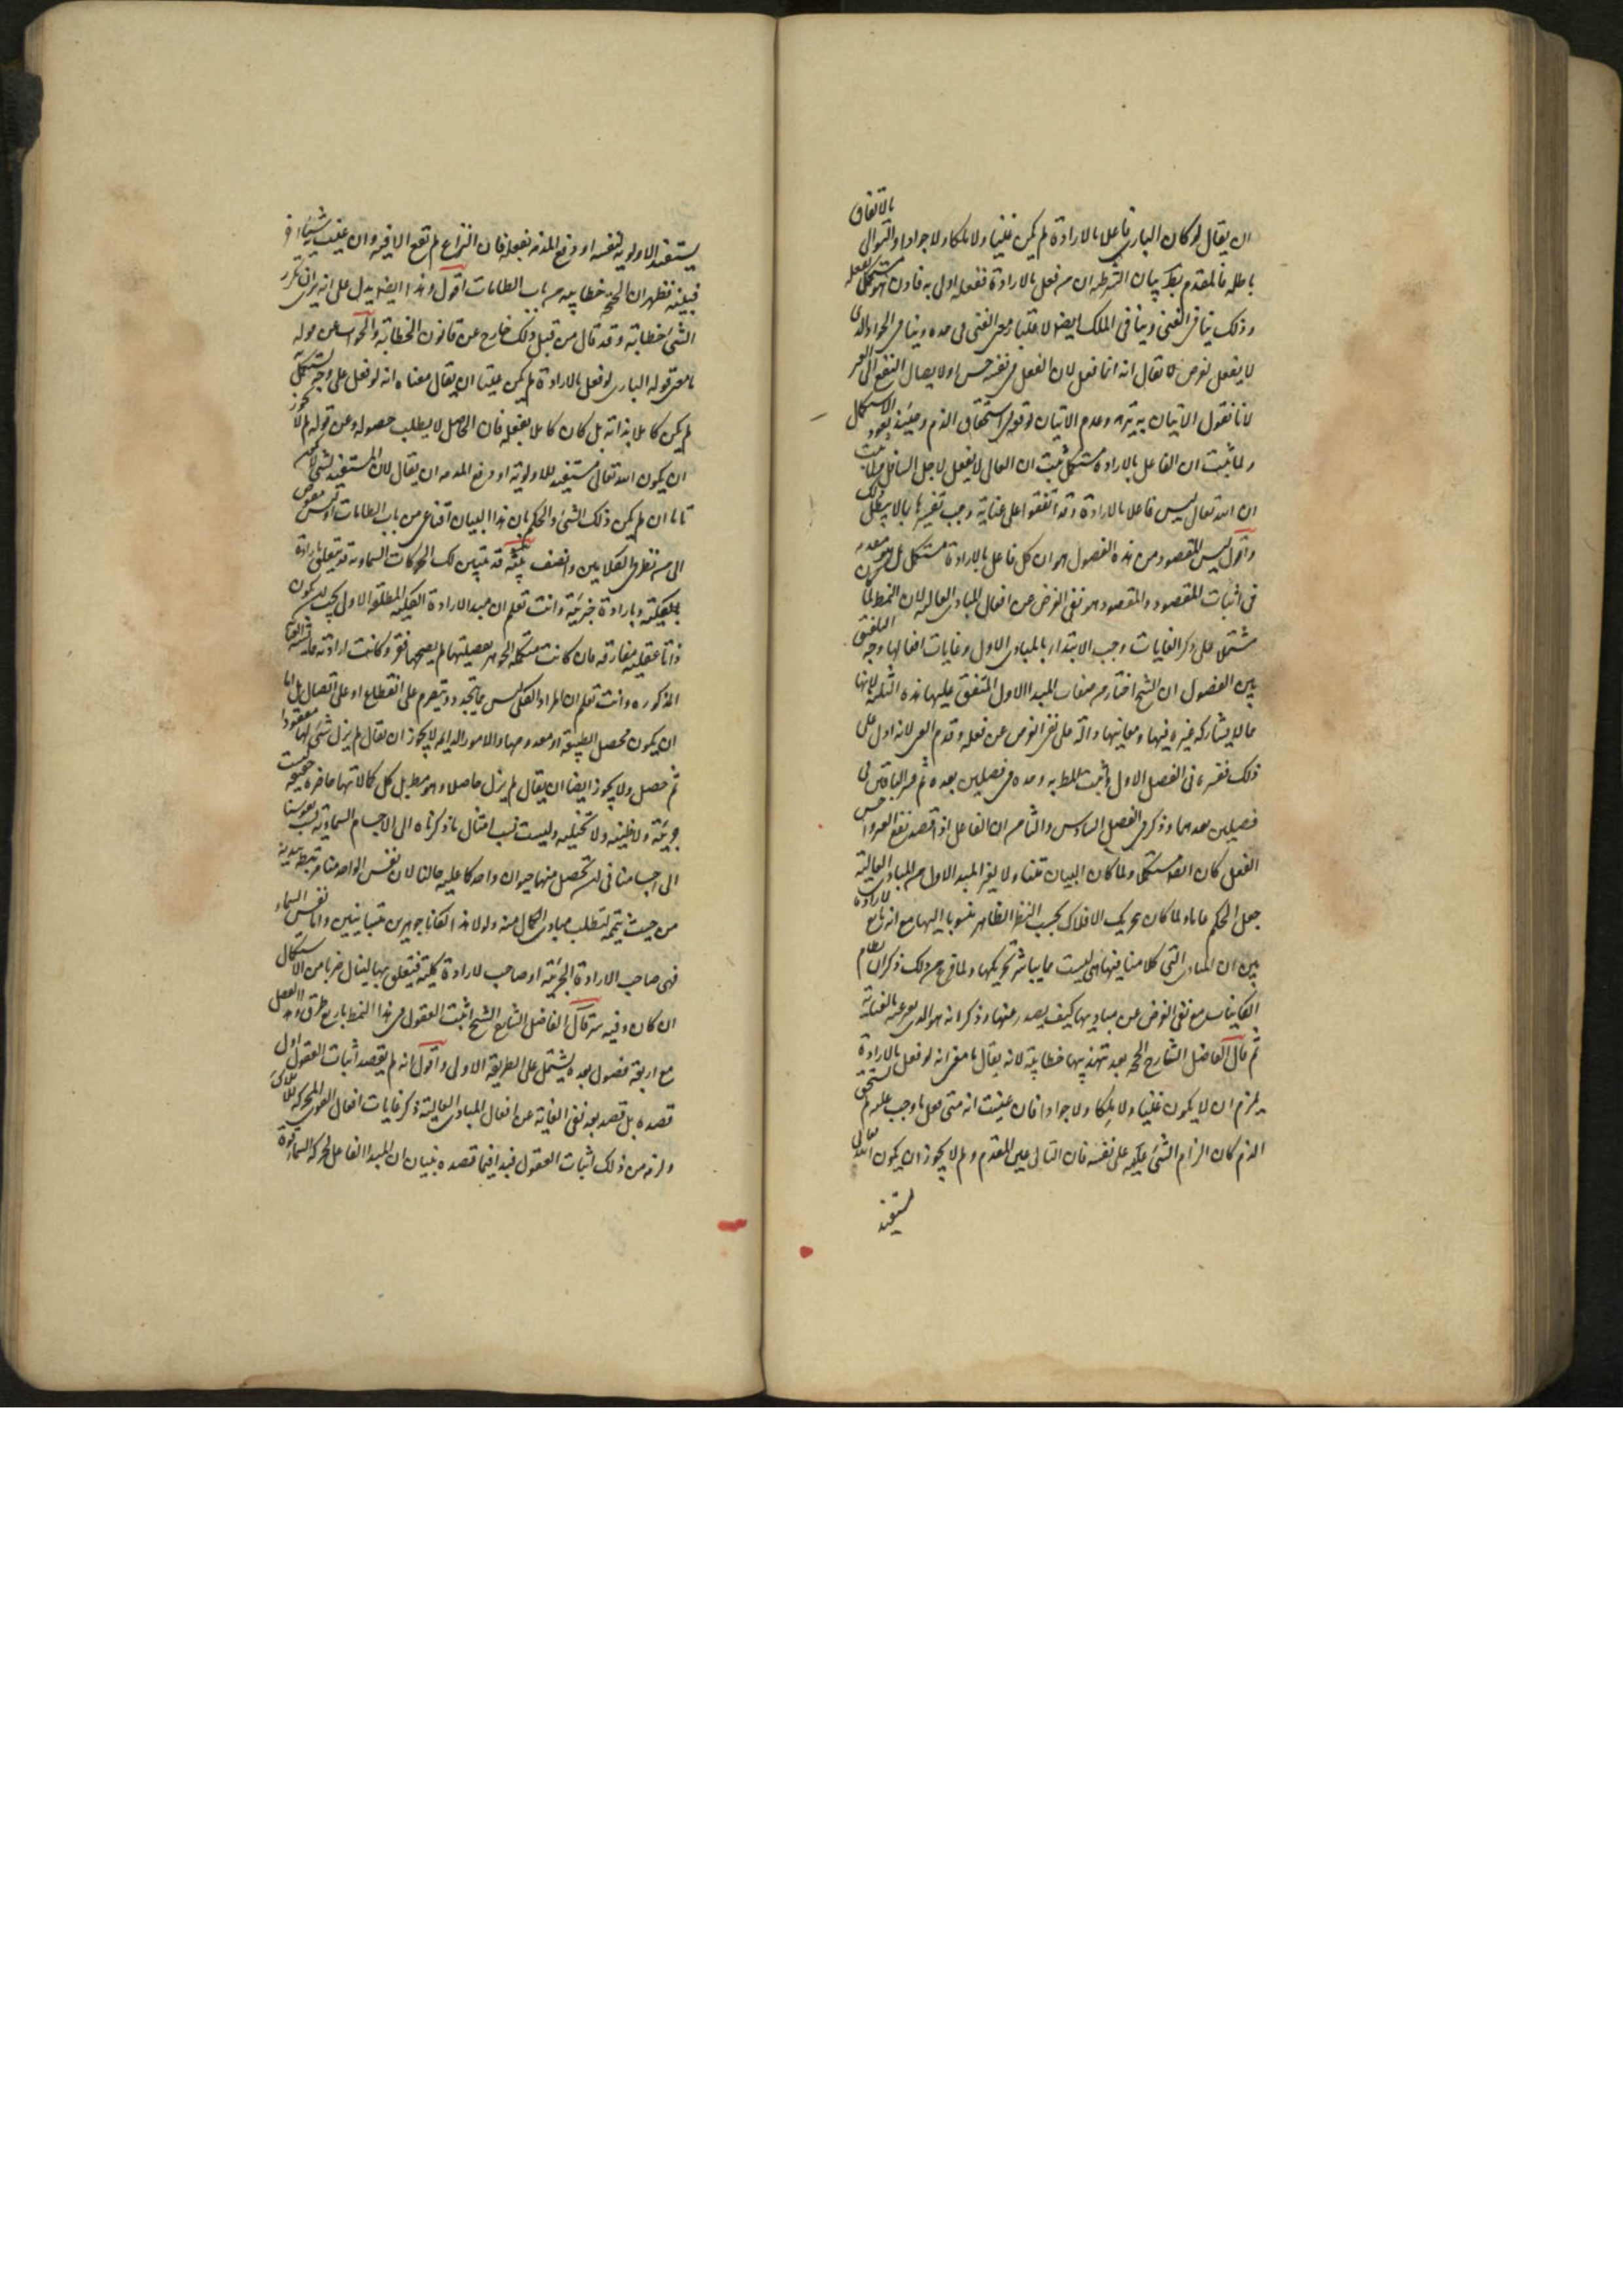 بالاتفاق
ان يقال لو كان البارى فاعلا بالارادة لم يكن غنيا ولا ملكا ولا جوادا والتوالى
باطله فالمقدم بيان الشرطيه ان من فعل بالارادة ففعله اولى به فاذن هو مستكمل بفعله
وذلك ينافى الغنى وينافى الملك ايضا لاعتبار معنى الغنى فى حده وينافى الجواد الذى
لا يفعل لغرض لا يقال انه انما فعل لان الفعل فى نفسه حسن او لايصال النفع الى الغير
لانا نقول الاتيان به ينزه وعدم الاتيان يوقع فى استحقاق الذم وحينئذ يعود الاستكمال
ولما ثبت ان الفاعل بالارادة مستكمل ثبت ان العالى لا يفعل لاجل السافل
ان الله تعالى ليس فاعلا بالارادة وقد اتفقوا على عناية وجب تفسيرها بما لا يبطل ذلك
واقول ليس المقصود من هذه الفصول هو ان كل فاعل بالارادة مستكمل بل هو مقدمه
فى اثبات المقصود والمقصود هو نفى الغرض عن افعال المبادى العاليه لان النمط لما كان
مشتملا على ذكر الغايات وجب الابتداء بالمبادى الاول وغايات افعالها وجه التلفيق
بين الفصول ان الشيخ اختار من صفات المبدا الاول المتفق عليها هذه الثلثة لانها
مما لا يشاركه غيره فيها ومعانيها دالة على نفى الغرض عن فعله وقدم الغنى لانه ادل على
ذلك ففسره فى الفصل الاول واثبت المط به وحده فى فصلين بعده ثم فسر الباقيين فى
فصلين بعدهما وذكر فى الفصل السادس والثامن ان الفاعل اذا قصد نفع الغير او حسن
الفعل كان ايضا مستكملا ولما كان البيان متناولا لغير المبدا الاول من المبادى العالية
جعل الحكم عاما ولما كان تحريك الافلاك بحسب النظر الظاهر منسوبا اليها مع انه بالارادة
بين ان المبادى التى كلامنا فيها هى ليست مما يباشر تحريكها ولما فرغ من ذلك ذكر ان نظام
الكاينات مع نفى الغرض عن مباديها كيف يصدر عنها وذكر انه هو الذى يعبر عنه بالعناية
ثم قال الفاضل الشارح الحجه بعد تهذيبها خطابية لانه يقال ما معنى انه لو فعل بالارادة
يلزم ان لا يكون غنيا ولا ملكا ولا جوادا فان عنيت انه متى فعل ما وجب عليه لم يستحق
الذم كان الزام الشئ على نفسه فان التالى عين المقدم ولم لا يجوز ان يكون الله تعالى
مستفيد
يستفيد الاولوية لنفسه او دفع المذمه بفعله فان النزاع لم يقع الا فيه وان عنيت شيئا اخر
فبينه فظهر ان الحجه خطابيه من باب الطامات اقول وهذا ايضا يدل على انه يرى ان تكرر
الشئ خطابة وقد قال من قبل ذلك خارج عن قانون الخطابة والجواب عن قوله
ما معنى قوله البارى لو فعل بالارادة لم يكن غنيا ان يقال معناه انه لو فعل على وجه يستكمل به
لم يكن كاملا بذاته بل كان كاملا بفعله فان الحاصل لا يطلب حصوله وعن قوله لم لا يجوز
ان يكون الله تعالى مستفيدا للاولوية او دفع المذمه ان يقال لان المستفيد لشئ لا يكون
تاما ان لم يكن ذلك الشئ والحكم بان هذا البيان اقناعى من باب الطامات او ليس مفوض
الى من نظر فى الكلامين وانصف تنبيه قد تبين لك ان الحركات السماويه قد يتعلق بارادة
كلية وبارادة جزئية وانت تعلم ان مبدا الارادة الكليه المطلقه الاولى يجب ان يكون
ذاتا عقليه مفارقه فان كانت مستكملة الجوهر بفضيلتها لم يصحبها فقر وكانت ارادته مما شبه العناية
المذكوره وانت تعلم ان المراد الكلى ليس مما يتجدد ويتصرم على انقطاع او على اتصال بل اما
ان يكون محصل الطبيعة او معدومها والامور الدايمه لا يجوز ان يقال لم يزل شئ لها مفقودا
ثم حصل ولا يجوز ايضا ان يقال لم يزل حاصلا وهو مطلوب بل كل كمالاتها حاضرة حقيقيه ليست
جزئية ولا ظنيه ولا تخيليه وليست نسب امثال ما ذكرناه الى الاجسام السماوية نسب نفوسنا
الى اجسامنا فى ان تحصل منها حيوان واحد كما عليه حالنا لان نفس الواحد منا مرتبطه ببدنه
من حيث يتمه لتطلب مبادى الكمال منه ولولا هذا لكانا جوهرين متباينين واما نفس السماء
فهى صاحب الارادة الجزئية او صاحب ارادة كلية فيتعلق بها لينال ضربا من الاستكمال
ان كان وفيه سر قال الفاضل الشارح الشيخ اثبت العقول فى هذا النمط باربع طرق وهذا الفصل
مع اربعة فصول بعده يشتمل على الطريقة الاولى واقول انه لم يقصد اثبات العقول اول
قصده بل قصد بعد نفى الغاية عن افعال المبادى العالية ذكر غايات افعال القوى المحركه للافلاك
ولزمه من ذلك اثبات العقول فبدا فيما قصده ببيان ان المبدا الفاعل لحركة السماء قوة